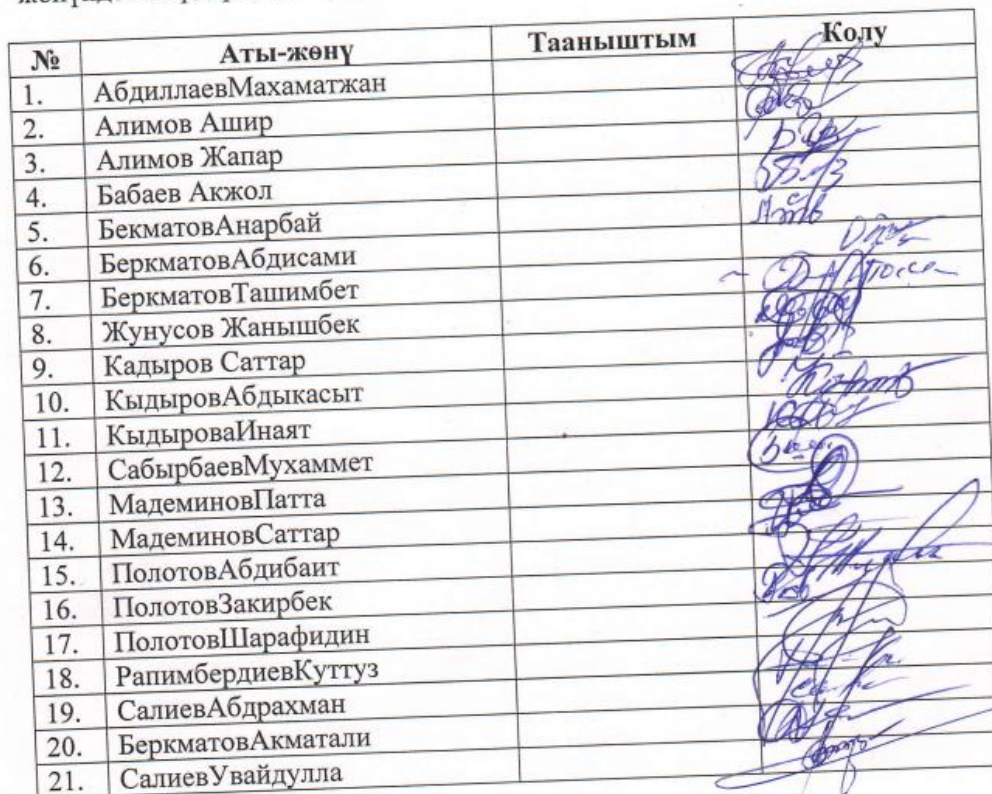 № Аты-жөнү Тааныштым Колу
1. АбдиллаевМахаматжан
2. Алимов Ашир
3. Алимов Жапар
4. Бабаев Акжол
5. БекматовАнарбай
6. БеркматовАбдисами
7. БеркматовТашимбет
8. Жунусов Жанышбек
9. Кадыров Саттар
10. КыдыровАбдыкасыт
11. КыдыроваИнаят
12. СабырбаевМухаммет
13. МадеминовПатта
14. МадеминовСаттар
15. ПолотовАбдибаит
16. ПолотовЗакирбек
17. ПолотовШарафидин
18. РапимбердиевКуттуз
19. СалиевАбдрахман
20. БеркматовАкматали
21. СалиевУвайдулла